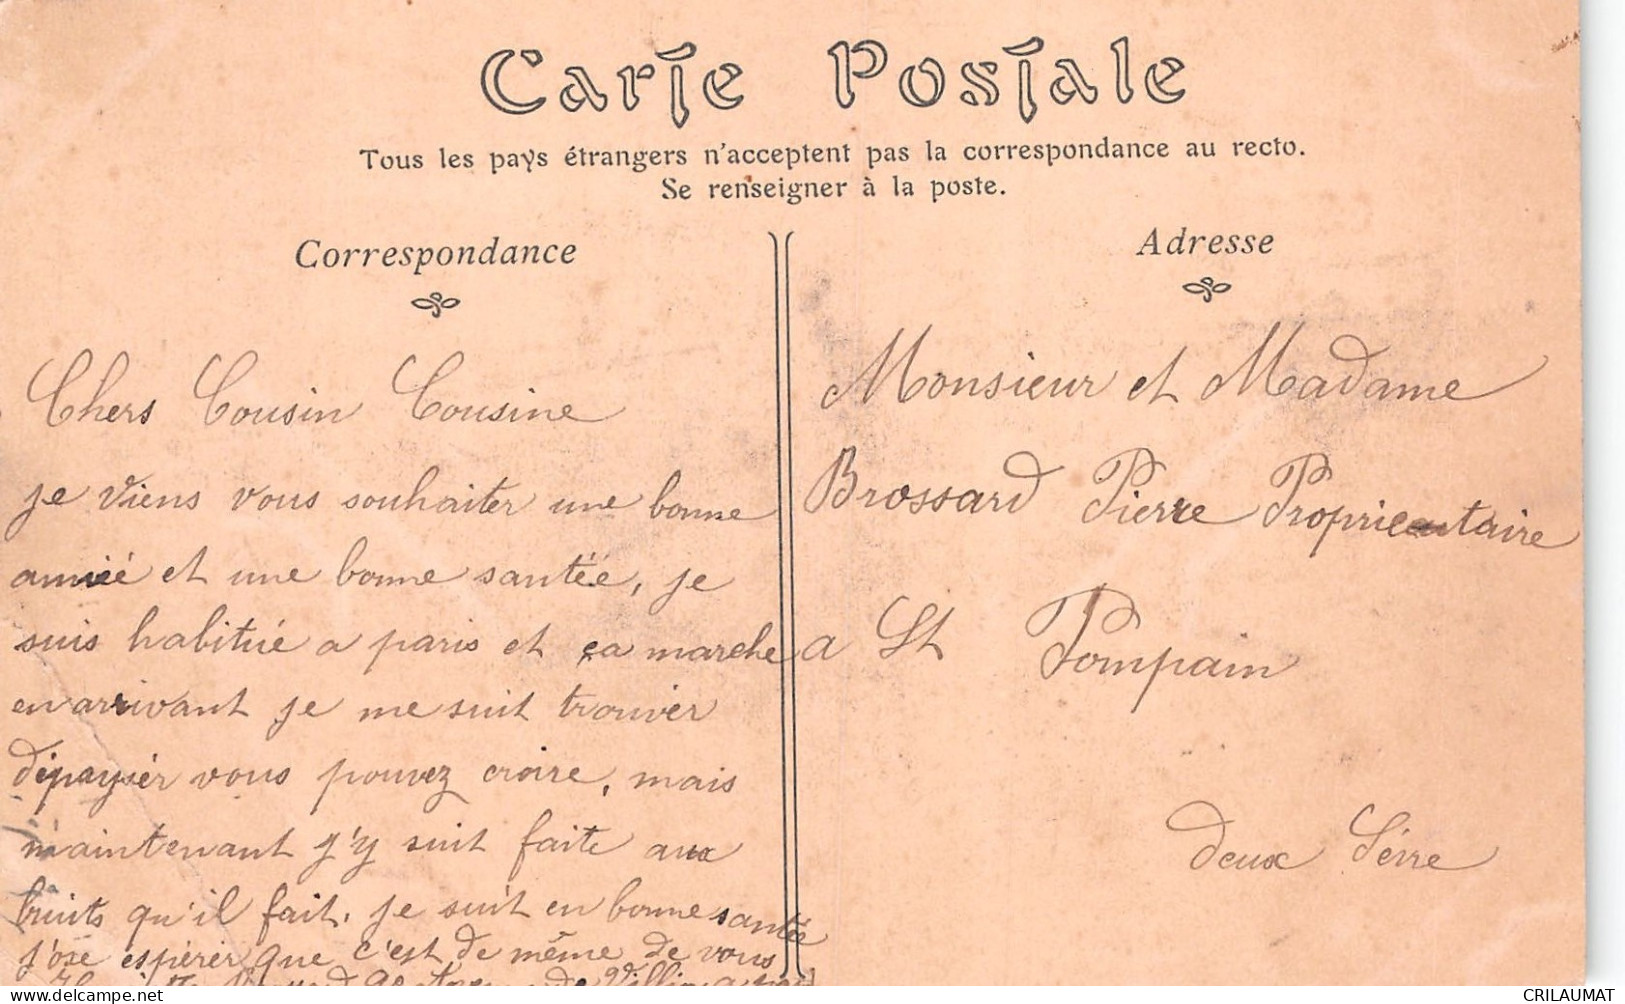 Carte Postale
Tous les pays étrangers n'acceptent pas la correspondance au recto.
Se renseigner à la poste.
Correspondance
Chers Cousin Cousine
je viens vous souhaiter une bonne
anneé et une bonne santée, je
suis habitué a paris et ça marche
en arrivant je me suit trouver
dépaysér vous pouvez croire, mais
maintenant j'y suit faite aux
bruits qu'il fait, je suit en bonne santée
j'ose espérér que c'est de même de vous
Adresse
Monsieur et Madame
Brossard Pierre Proprietaire
a St Pompain
deux Sévre
CRILAUMAT